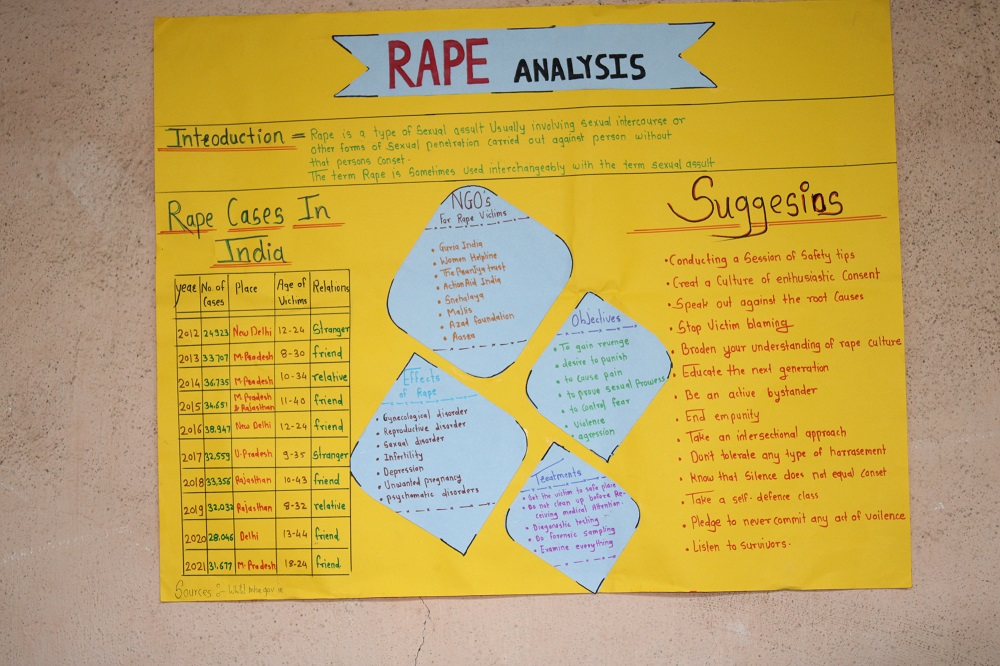 RAPE ANALYSIS
Inteoduction = Rape is a type of Sexual assult Usually involving sexual intercourse or
other forms of Sexual penetration carried out against person without
that persons conset.
The term Rape is Sometimes used interchangeably with the term sexual assult
Rape Cases In
India
year No. of Cases Place Age of Victims Relations
2012 24923 New Delhi 12-24 Stranger
2013 33707 M.Pradesh 8-30 friend
2014 36.735 M Pradesh 10-34 relative
2015 34.651 M Pradesh & Rajasthan 11-40 friend
2016 38.947 New Delhi 12-24 friend
2017 32.559 U.Pradesh 9-35 Stranger
2018 33.356 Rajasthan 10-43 friend
2019 32.032 Rajasthan 8-32 relative
2020 28.046 Delhi 13-44 friend
2021 31.677 M.Pradesh 18-24 friend
Sources :-
NGO's
For Rape Victims
• Guria India
• Women Helpline
• ActionAid India
• Snehalaya
• Majlis
• Azad foundation
• Aasra
Objectives
• To gain revenge
• desire to punish
• to cause pain
• to prove sexual Prowess
• to control fear
• Violence
• agression
Effects
of Rape
• Gynecological disorder
• Reproductive disorder
• Sexual disorder
• Infertility
• Depression
• Unwanted pregnancy
• psychamatic disorders
Treatments
• Get the victim to safe place
• Do not clean up before Re-
ceiving medical Attention.
• Diagnostic testing
• Do forensic sampling
• Examine everything
Suggesins
• Conducting a Session of Safety tips
• Creat a Culture of enthusiastic Consent
• Speak out against the root Causes
• Stop Victim blaming
• Broden your understanding of rape culture
• Educate the next generation
• Be an active bystander
• End empunity
• Take an intersectional approach
• Don't tolerate any type of harrasement
• Know that Silence does not equal conset
• Take a self-defence class
• Pledge to never commit any act of voilence
• Listen to survivors.